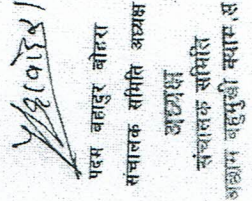 पदम बहादुर बोहरा
संचालक समिति अध्यक्ष
अध्यक्ष
संचालक समिति
बहुमुखी क्याम्पस